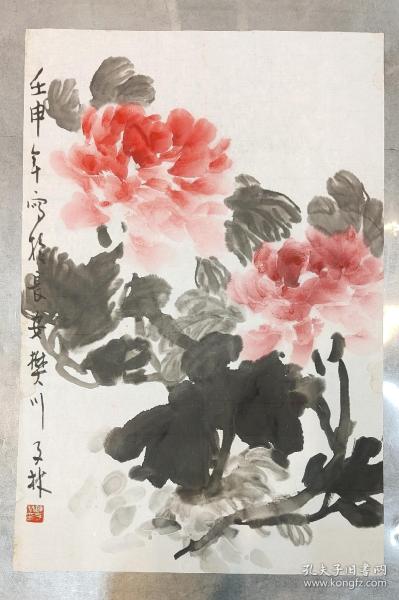 壬申年写於長安樊川子林
孔夫子旧书网
www.kongfz.com